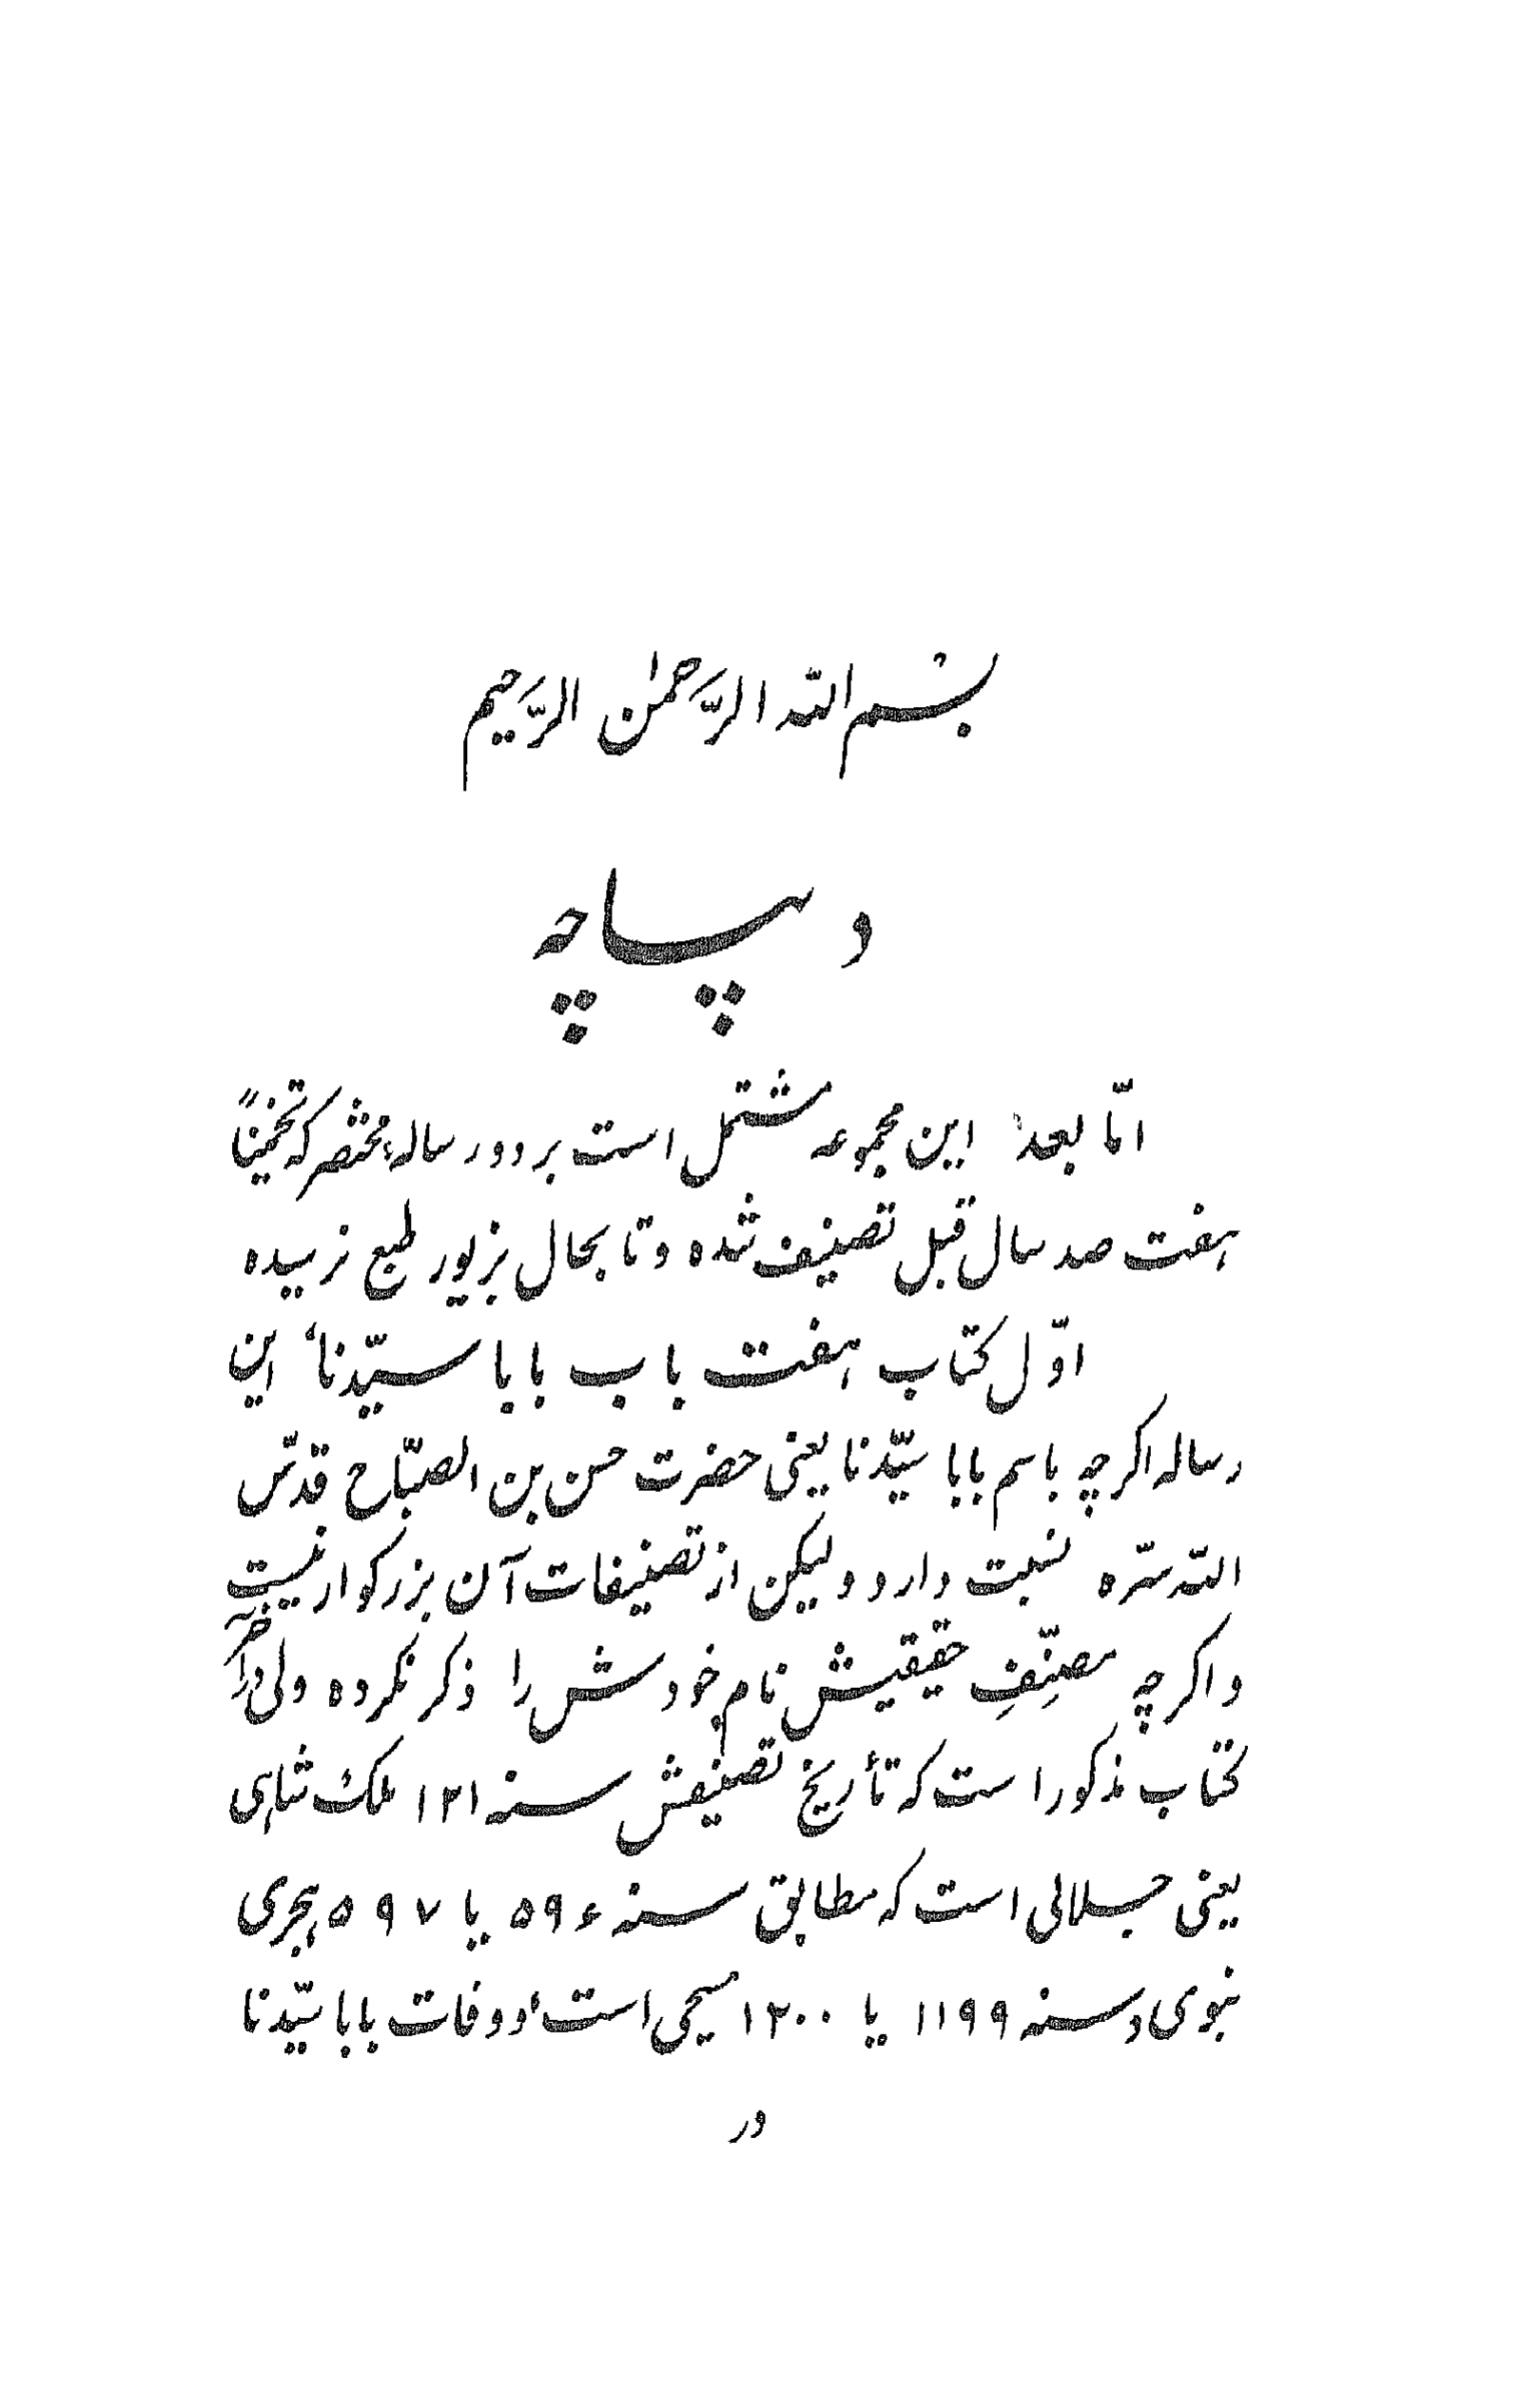 بسم الله الرَّحمٰن الرَّحیم
دیباچه
امّا بعد این مجموعه مشتمل است بر دو رسالهٔ مختصر که تخمیناً
هفت صد سال قبل تصنیف شده و تا بحال بزیور طبع نرسیده
اوّل کتاب هفت باب بابا سیّدنا، این
رساله اکرچه باسم بابا سیّدنا یعنی حضرت حسن بن الصبّاح قدّس
الله سرّه نسبت دارد ولیکن از تصنیفات آن بزرکوار نیست
و اکرچه مصنّفِ حقیقیش نام خودش را ذکر نکرده ولی در آخر
کتاب مذکور است که تأریخ تصنیفش سنه ۱۲۱ ملک شاهی
یعنی جلالی است که مطابق سنه ۵۹۶ یا ۵۹۷ هجری
نبوی و سنه ۱۱۹۹ یا ۱۲۰۰ مسیحی است، و وفات بابا سیّدنا
در